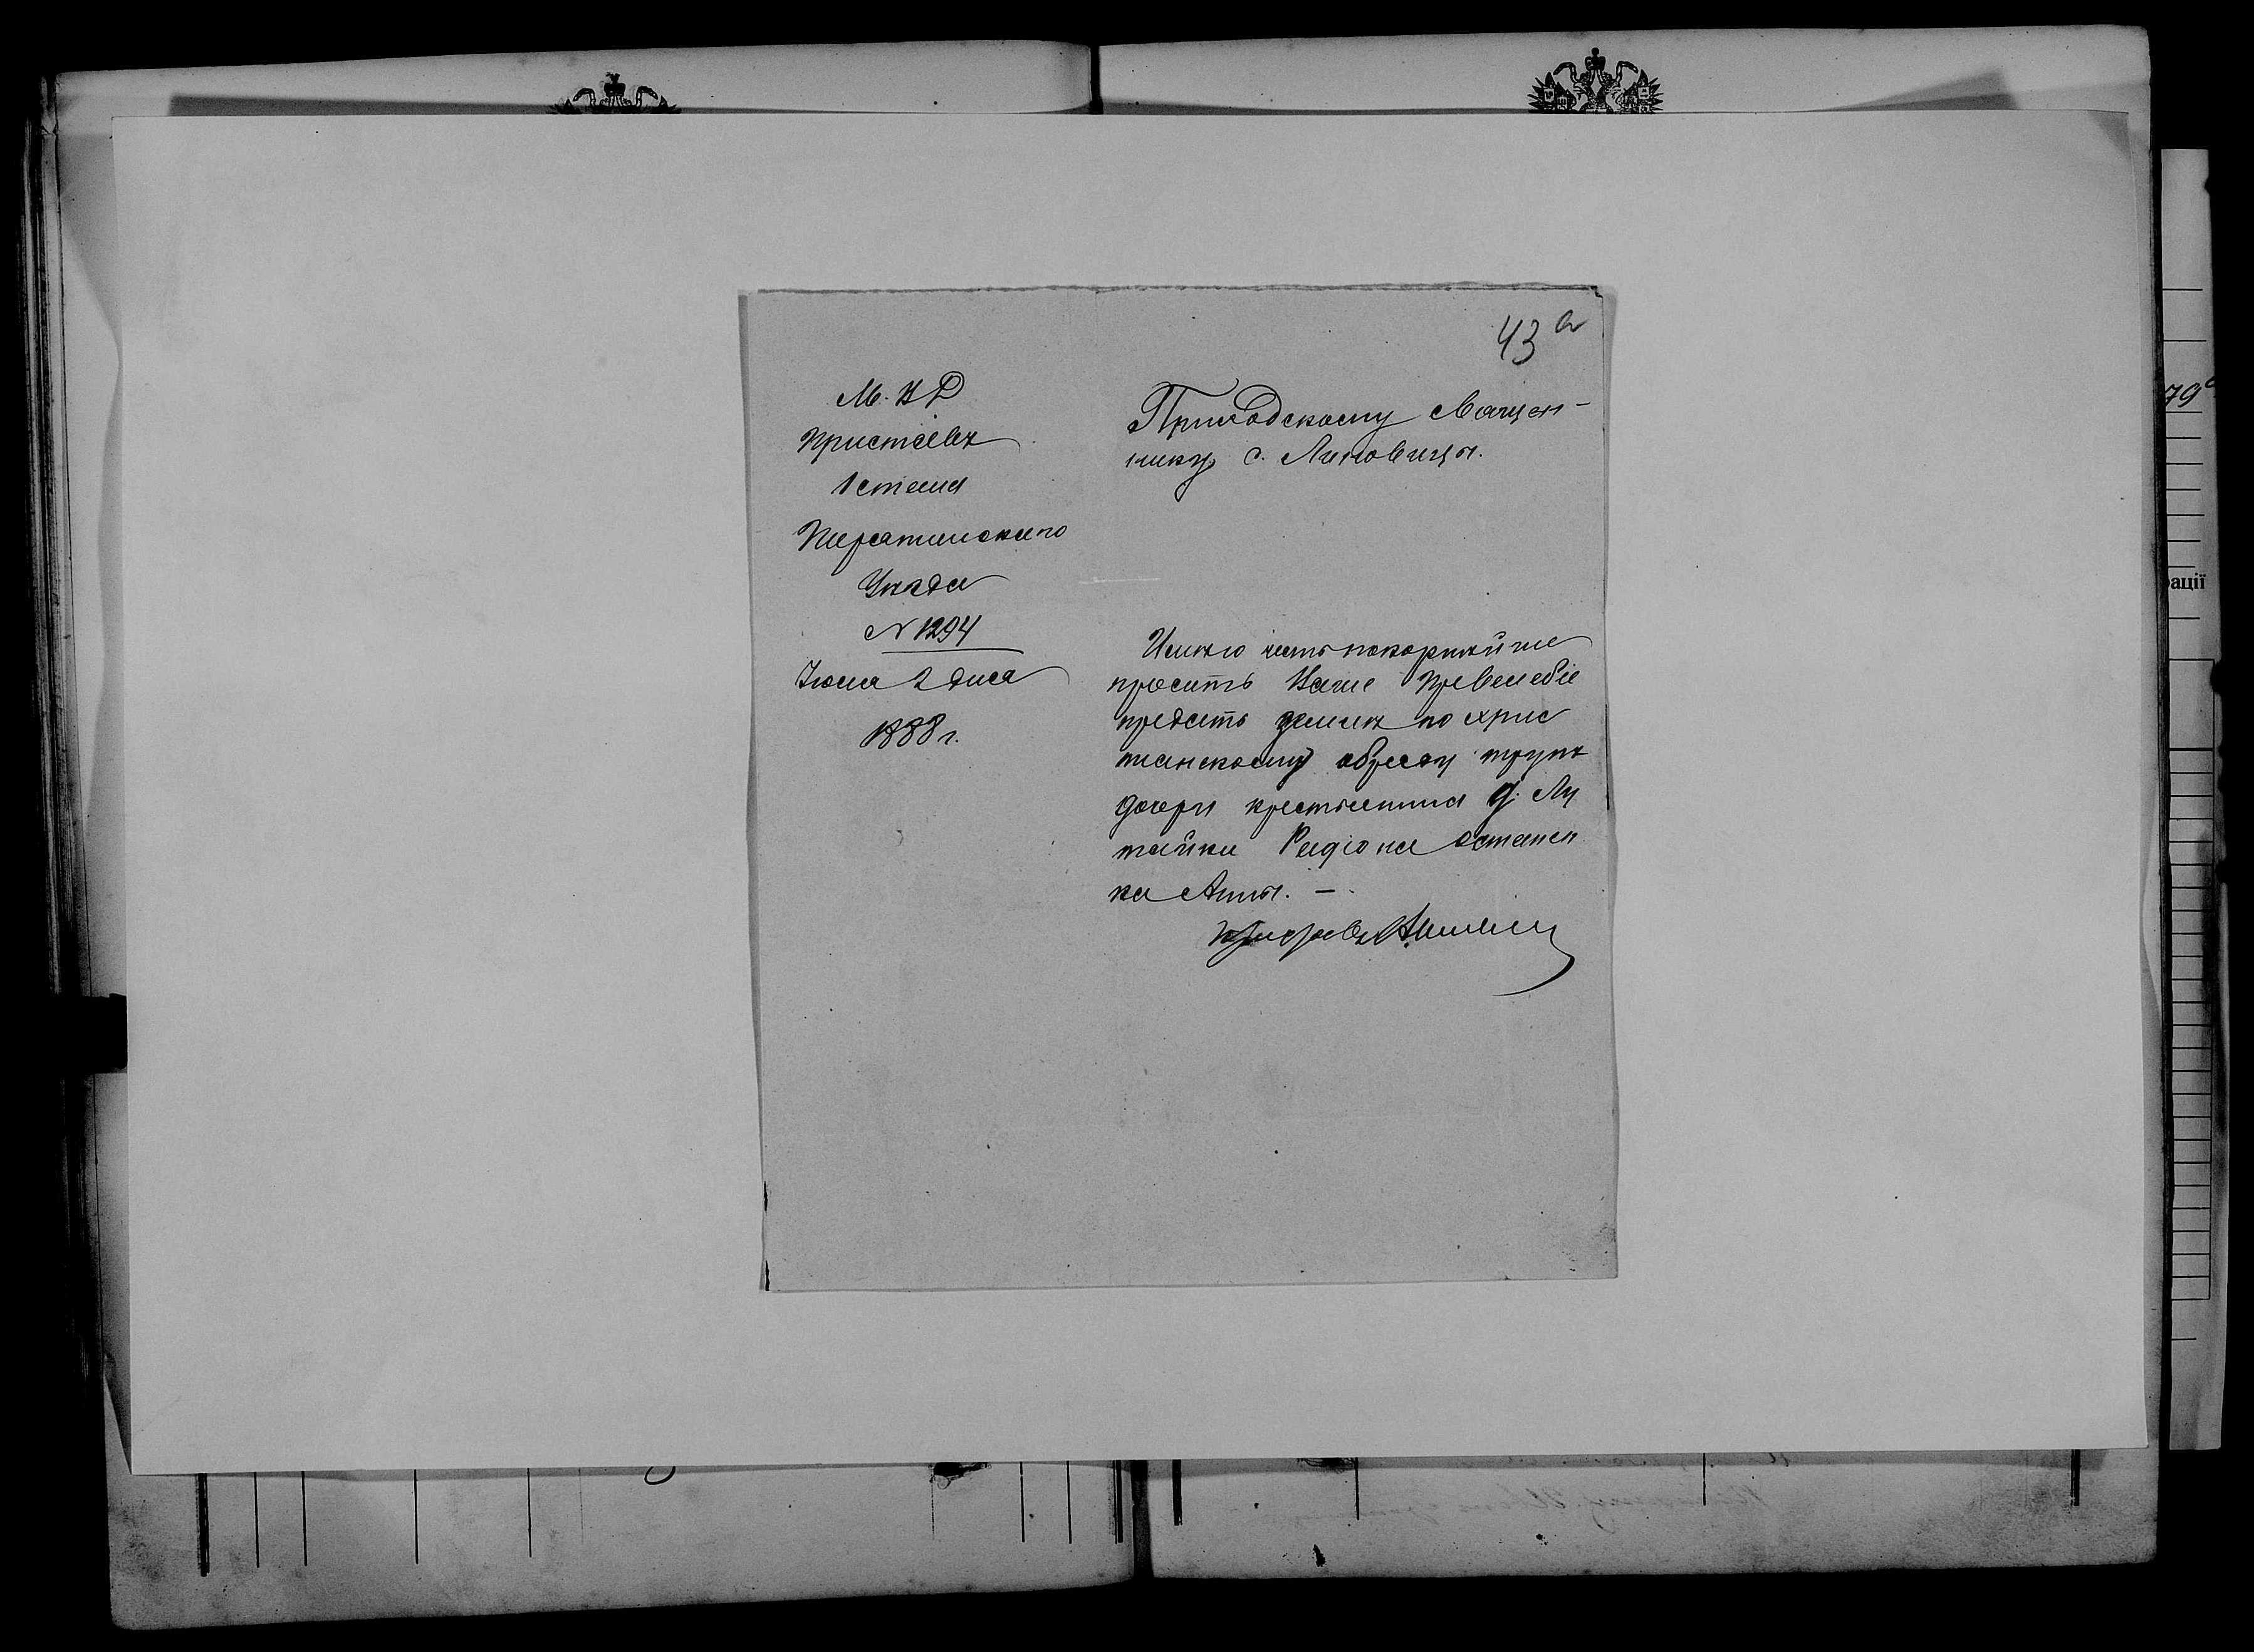 43 а
М. В. Д.
Приставъ
1 стана
Пирятинскаго
Уѣзда
N 1294
Іюня 2 дня
1888 г.
Приходскому Священ-
нику с. Линовицы.
Имѣю честь покорнѣйше
просить Ваше Преподобіе
предать землѣ по хрис
тианскому обряду трупъ
дочери крестьянина д. Лу
тайки Радіона Остапен
ка Анны. –
Приставъ
79
рації